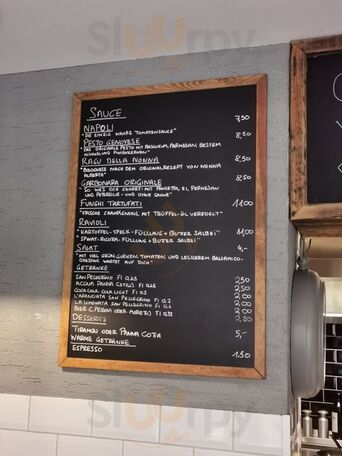 SLUURPY
SAUCE 7,50
NAPOLI
"DIE EINZIG WAHRE TOMATENSAUCE" 8,50
PESTO GENOVESE
"DAS ORIGINALE PESTO MIT BASILIKUM, PARMESAN, BESTEM
OLIVENÖL UND PINIENKERNEN" 8,50
RAGU DELLA NONNA
"BOLOGNESE NACH DEM ORIGINALREZEPT VON NONNA 8,50
ALBERTA"
CARBONARA ORIGINALE
"SO WIE SICH GEHÖRT: MIT PANCETTA, EI, PARMESAN
UND PETERSILIE - UND OHNE SAHNE"
FUNGHI TARTUFATI 11,00
"FRISCHE CHAMPIGNONS, MIT TRÜFFEL-ÖL VEREDELT"
RAVIOLI
"KARTOFFEL-SPECK-FÜLLUNG + BUTTER SALBEI" 11,00
"SPINAT-RICOTTA-FÜLLUNG + BUTTER SALBEI"
SALAT 4,-
"MIT VIEL GRÜN, GURKEN, TOMATEN UND LECKEREM BALSAMICO-
DRESSING WARTET AUF DICH"
GETRÄNKE
SAN PELLEGRINO Fl 0,25 2,50
ACQUA PANNA (STILL) Fl 0,25 2,50
COCA COLA COLA LIGHT Fl 0,3
L'ARANCIATA SAN PELLEGRINO Fl 0,2
LA LIMONATA SAN PELLEGRINO Fl 0,2
BIER (PERONI ODER MORETTI) Fl 0,33
DESSERTS
TIRAMISU ODER PANNA COTTA 5,-
WARME GETRÄNKE
ESPRESSO 1,50
sluurpy